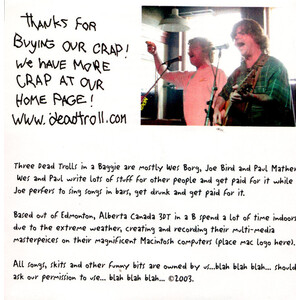 THANKS FOR
BUYING OUR CRAP!
WE HAVE MORE
CRAP AT OUR
HOME PAGE!
www.deadtroll.com
Three Dead Trolls in a Baggie are mostly Wes Borg, Joe Bird and Paul Mather
Wes and Paul write lots of stuff for other people and get paid for it while
Joe perfers to sing songs in bars, get drunk and get paid for it.
Based out of Edmonton, Alberta Canada 3DT in a B spend a lot of time indoors
due to the extreme weather, creating and recording their multi-media
masterpeices on their magnificent Macintosh computers (place mac logo here).
All songs, skits and other funny bits are owned by us...blah blah blah... should
ask our permission to use... blah blah blah... ©2003.